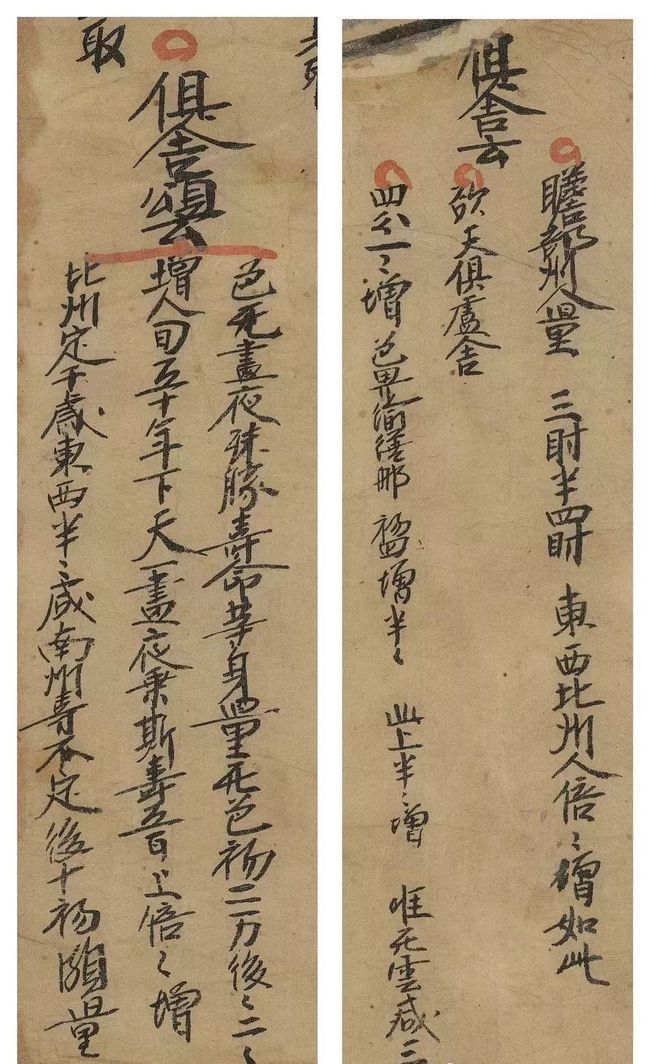 俱舍云
贍部州人量 三肘半四肘 東西比州人倍〻增如此
欲天俱盧舍
四分一〻增 色界踰繕那 初四增半〻 此上半〻增 唯无雲减三
俱舍頌云
色无晝夜殊勝壽命等身量无色初二万後〻二〻
增人间五十年下天一晝夜乗斯壽五百上倍〻增
比州定千歳東西半〻咸南州壽不定後十初頗量
取